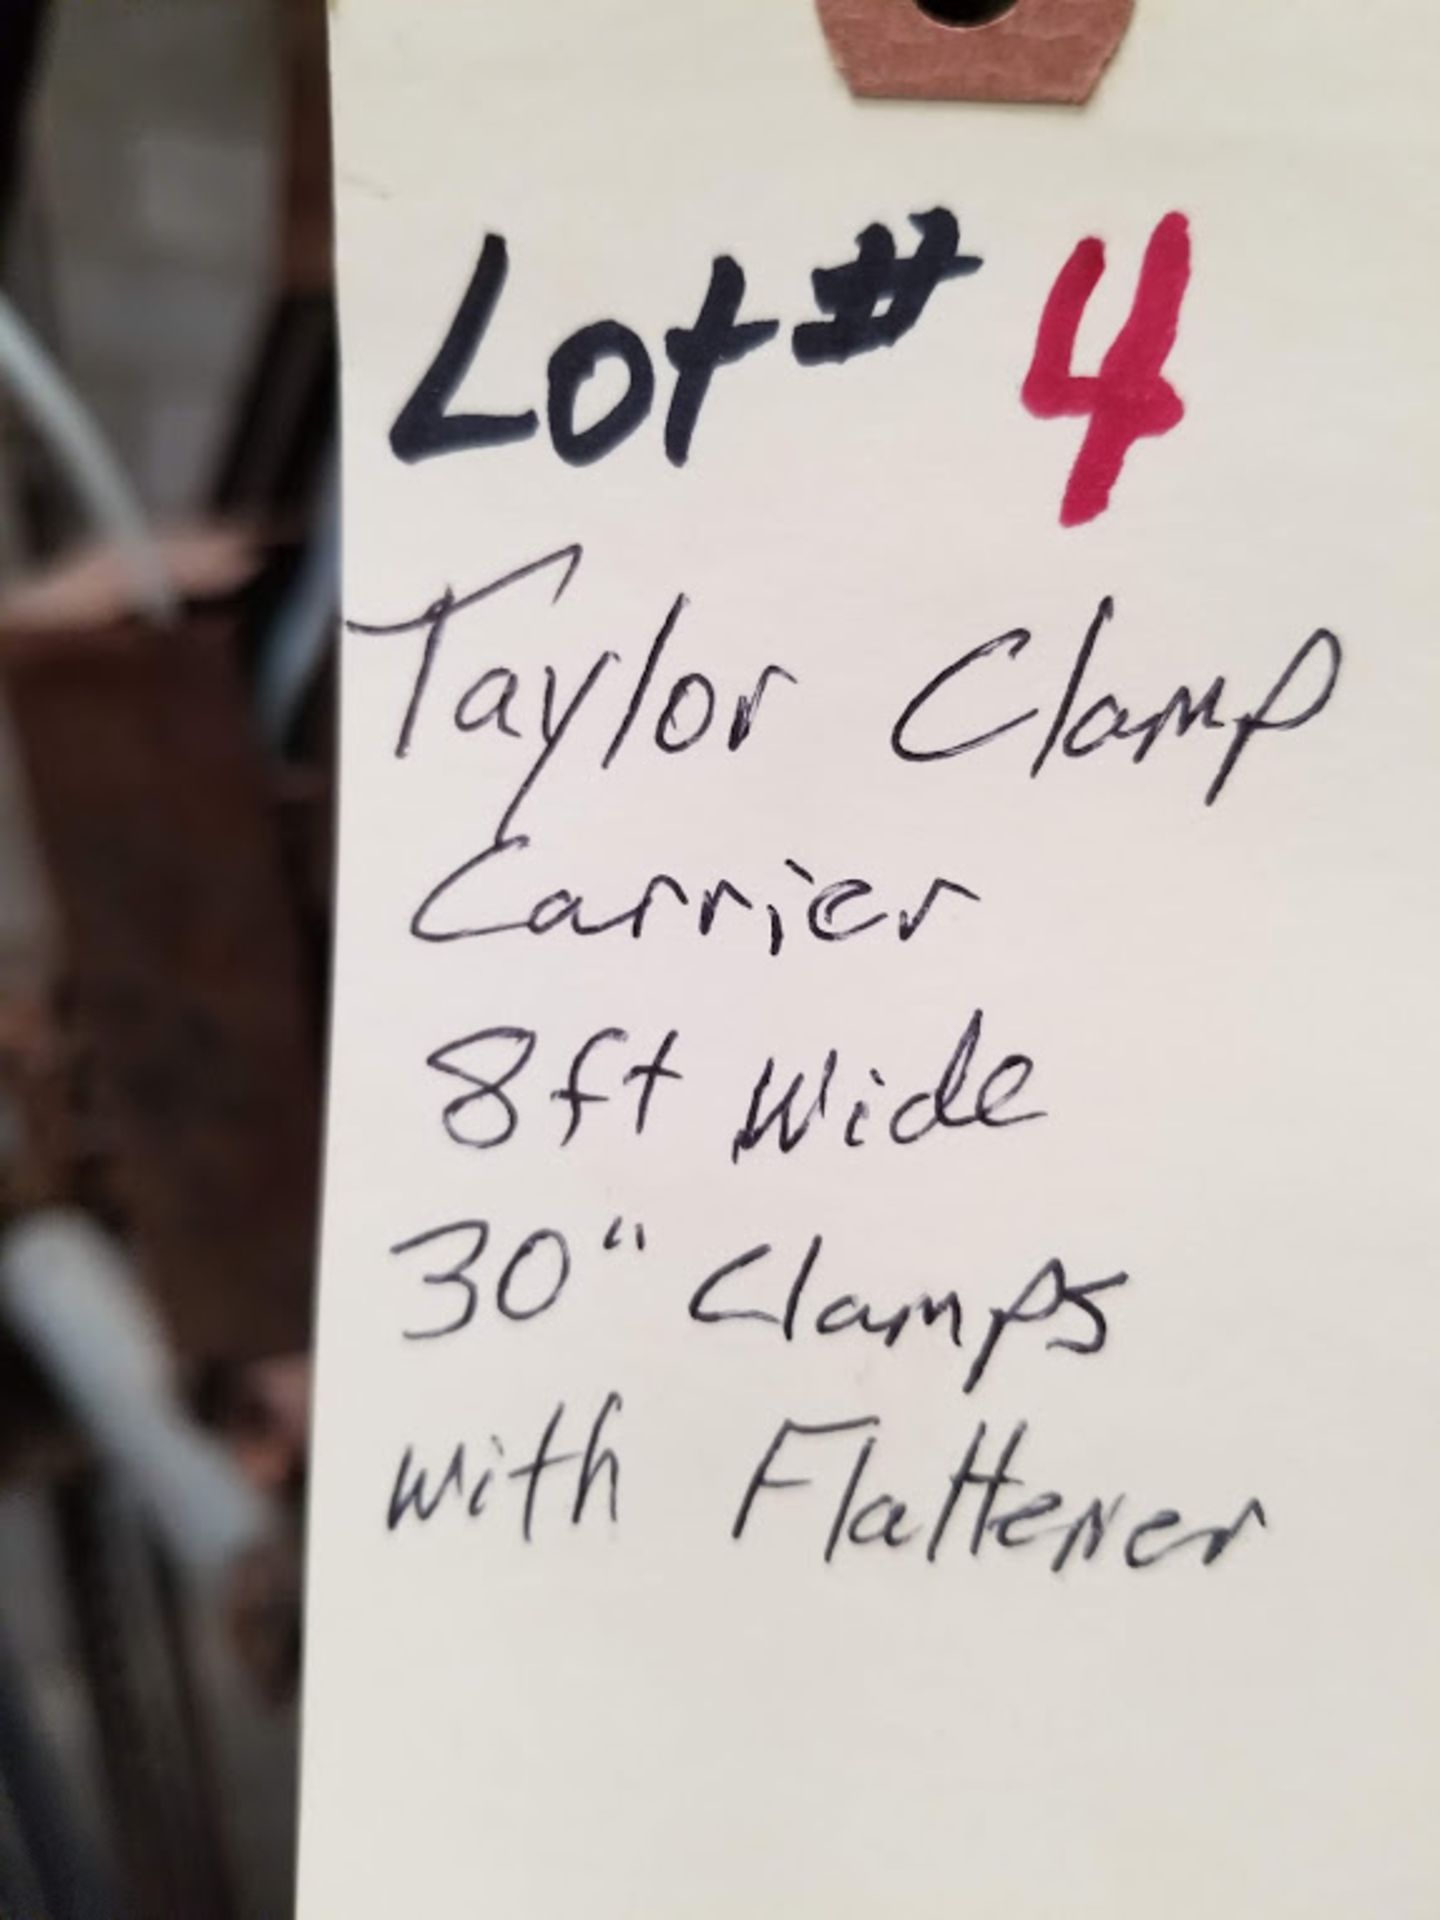 Lot # 4
Taylor Clamp
Carrier
8ft Wide
30" Clamps
with Flattener